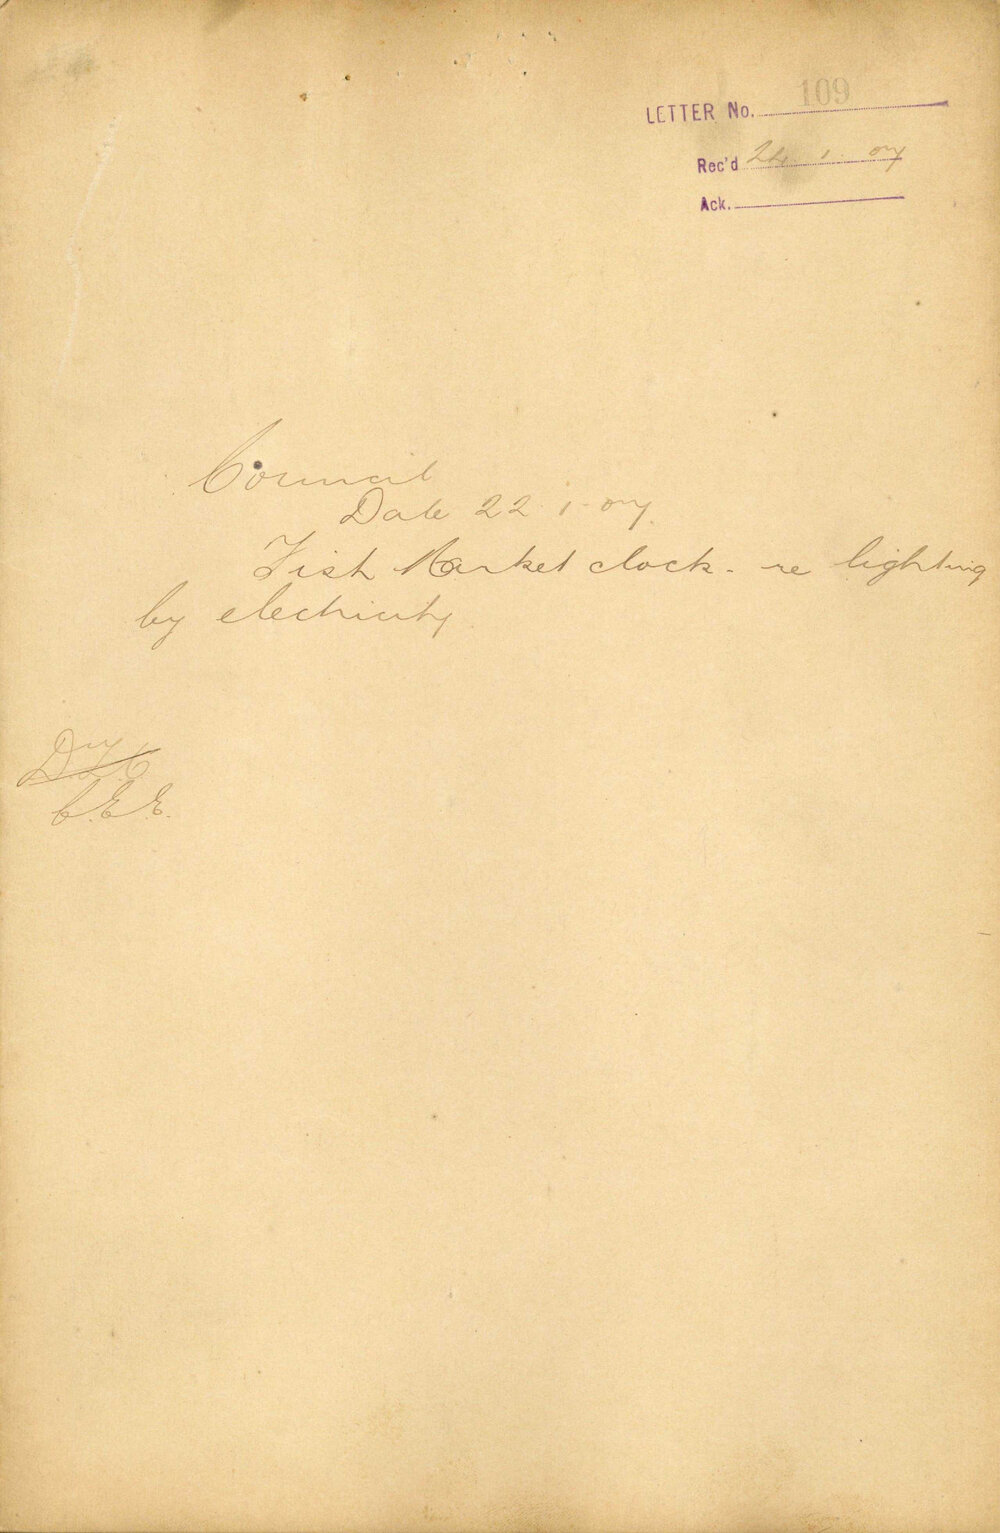 LETTER No. 109
Rec'd 24. 1. 07
Ack.
Council
Date 22. 1. 07.
Fish Market clock. re lighting
by electricity
C.E.E.